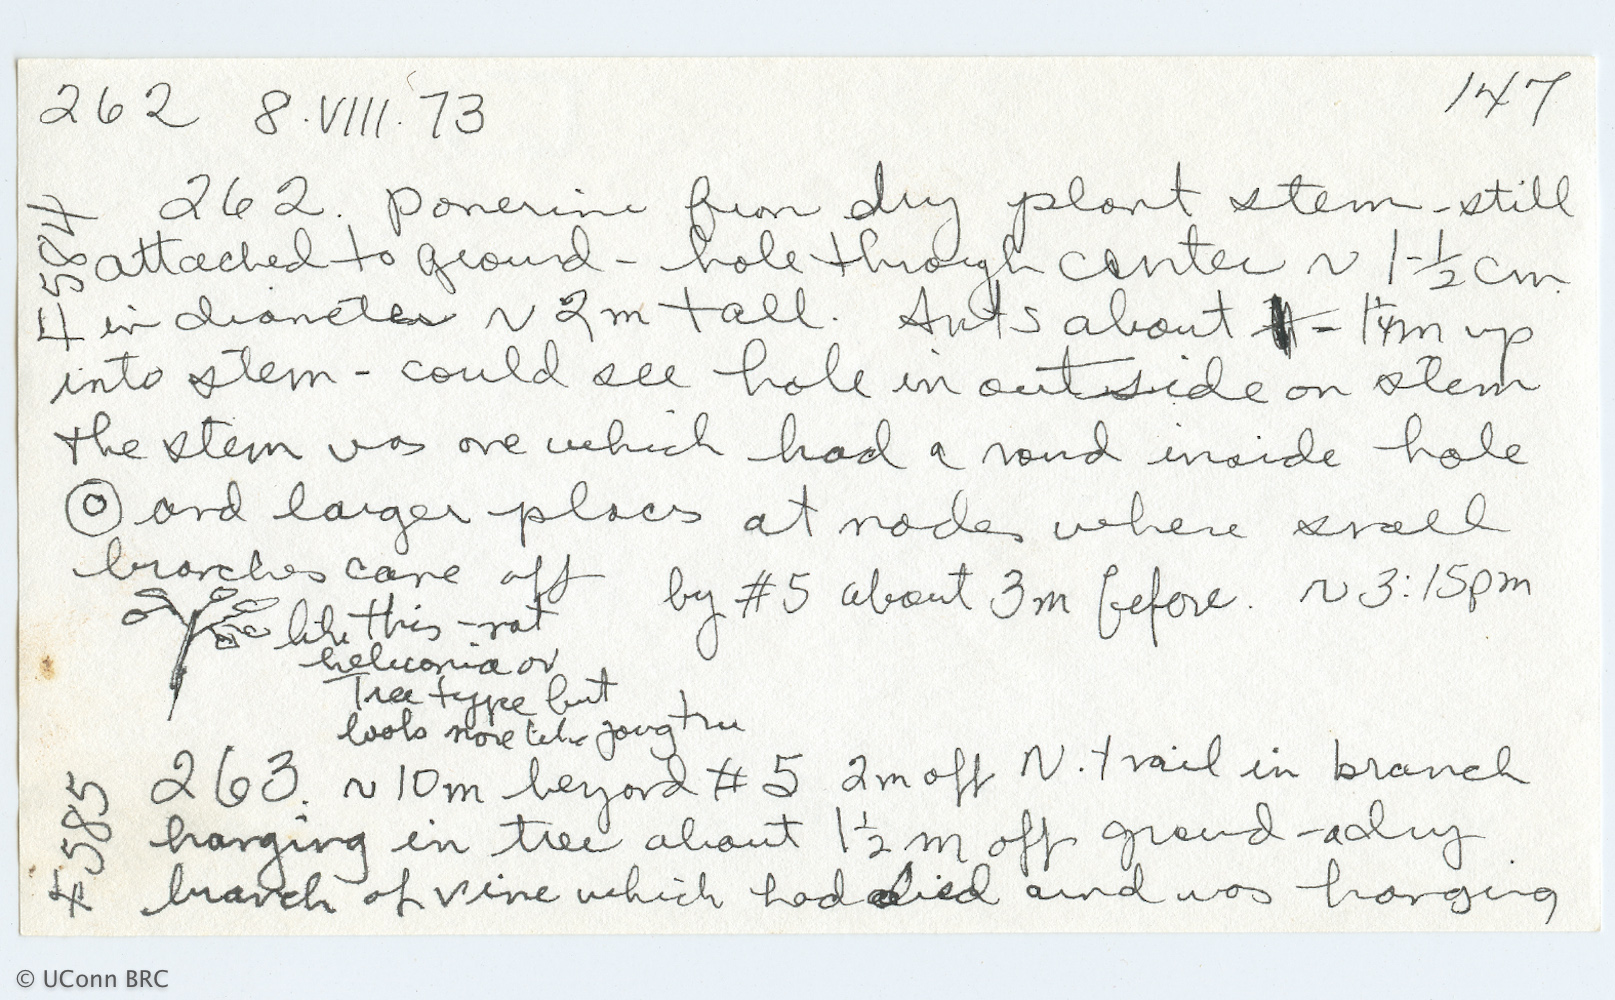 262 8.VIII.'73 147
262. ponerine from dry plant stem - still
attached to ground - hole through center ~ 1-½ cm.
in diameter ~ 2m tall. Ants about - 1¼m up
into stem - could see hole in outside on stem
the stem was one which had a round inside hole
and larger places at nodes where small
branches came off by #5 about 3m before. ~ 3:15pm
like this - not
heliconia or
Tree type but
looks more like young tree
F584
263. ~ 10m beyond #5 2m off N. trail in branch
hanging in tree about 1½ m off ground - a dry
branch of vine which had died and was hanging
F585
© UConn BRC